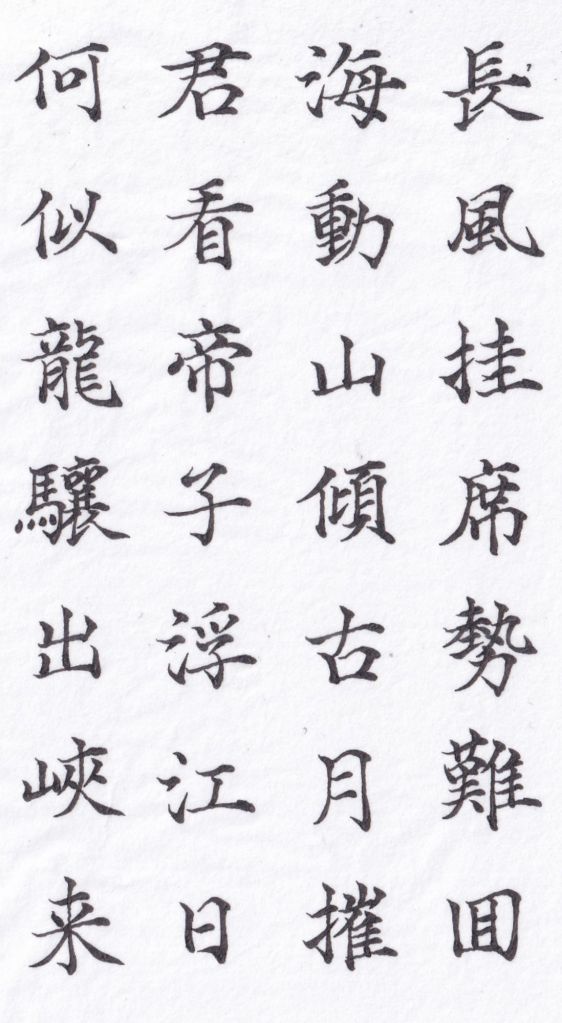 長風挂席勢難囬
海動山傾古月摧
君看帝子浮江日
何似龍驤出峽来